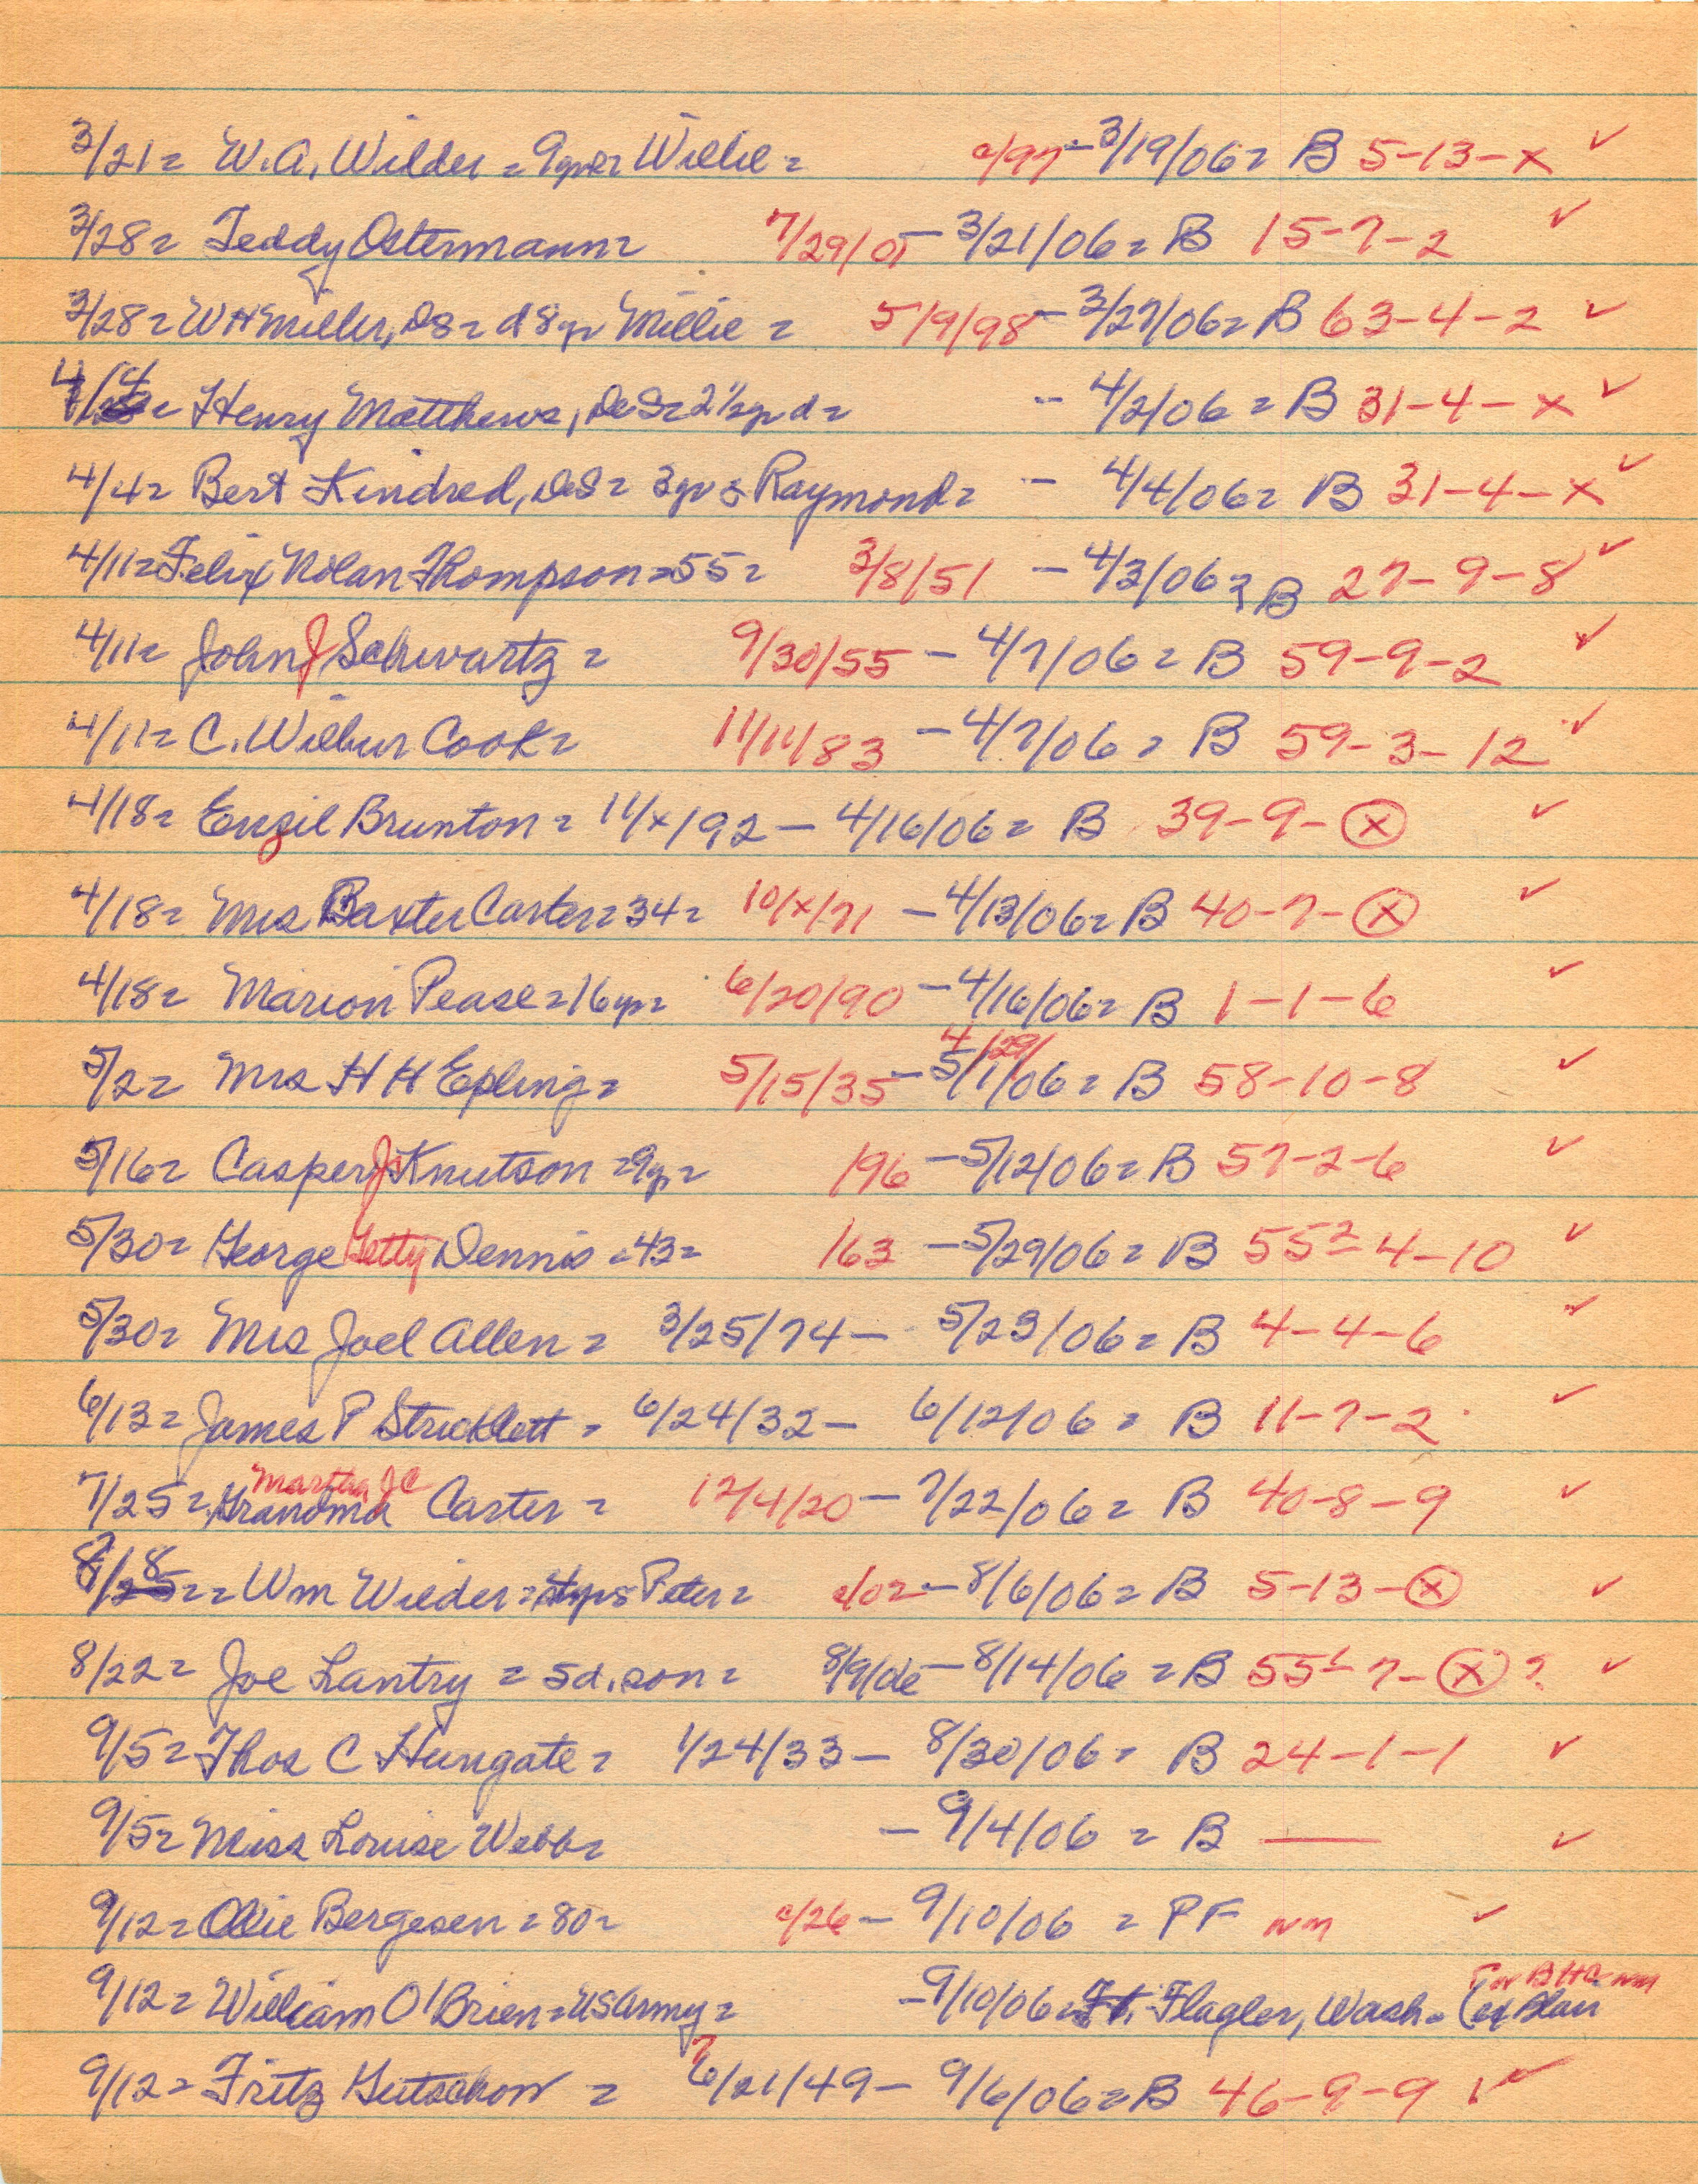 3/21= W.A. Wilder = 9yr Willie = c/97 - 3/19/06 = B 5-13-x ✓
3/28= Teddy Ostermann = 7/29/05 - 3/21/06 = B 15-7-2 ✓
3/28= WH Miller, DS = d 8yr Millie = 5/9/98 - 3/27/06 = B 63-4-2 ✓
4/4= Henry Matthews, DeS = 2½yr d = - 4/2/06 = B 31-4-x ✓
4/4= Bert Kindred, DeS = 3yr s Raymond = - 4/4/06 = B 31-4-x ✓
4/11= Felix Nolan Thompson = 55 = 3/8/51 - 4/3/06 = B 27-9-8 ✓
4/11= John J Schwartz = 9/30/55 - 4/7/06 = B 59-9-2 ✓
4/11= C. Wilbur Cook = 11/11/83 - 4/7/06 = B 59-3-12 ✓
4/18= Enzil Brunton = 11/x/92 - 4/16/06 = B 39-9-ⓧ ✓
4/18= Mrs Baxter Carter = 34 = 10/x/71 - 4/13/06 = B 40-7-ⓧ ✓
4/18= Marion Pease = 16yr = 6/20/90 - 4/16/06 = B 1-1-6 ✓
4/29/
5/2= Mrs H H Epling = 5/15/35 - 5/1/06 = B 58-10-8 ✓
5/16= Casper J Knutson = 9yr = /96 - 5/12/06 = B 57-2-6 ✓
5/30= George Getty Dennis = 43 = /63 - 5/29/06 = B 55²-4-10 ✓
5/30= Mrs Joel Allen = 3/25/74 - 5/23/06 = B 4-4-6 ✓
6/13= James P Stricklett = 6/24/32 - 6/12/06 = B 11-7-2 ✓
Martha JC
7/25= Grandma Carter = 12/4/20 - 7/22/06 = B 40-8-9 ✓
8/8= Wm Wilder = 4yr s Peter = c/02 - 8/6/06 = B 5-13-ⓧ ✓
8/22= Joe Lantry = 5d. son = 8/9/06 - 8/14/06 = B 55¹-7-ⓧ? ✓
9/5= Thos C Hungate = 1/24/33 - 8/30/06 = B 24-1-1 ✓
9/5= Miss Louise Webb = - 9/4/06 = B — ✓
9/12= Ollie Bergesen = 80 = c/26 - 9/10/06 = PF nm ✓
For BHC nm
9/12= William O'Brien = US Army = - 9/10/06 = Ft. Flagler, Wash = (ex Blair
7
9/12= Fritz Gutschow = 6/21/49 - 9/6/06 = B 46-9-9 ✓